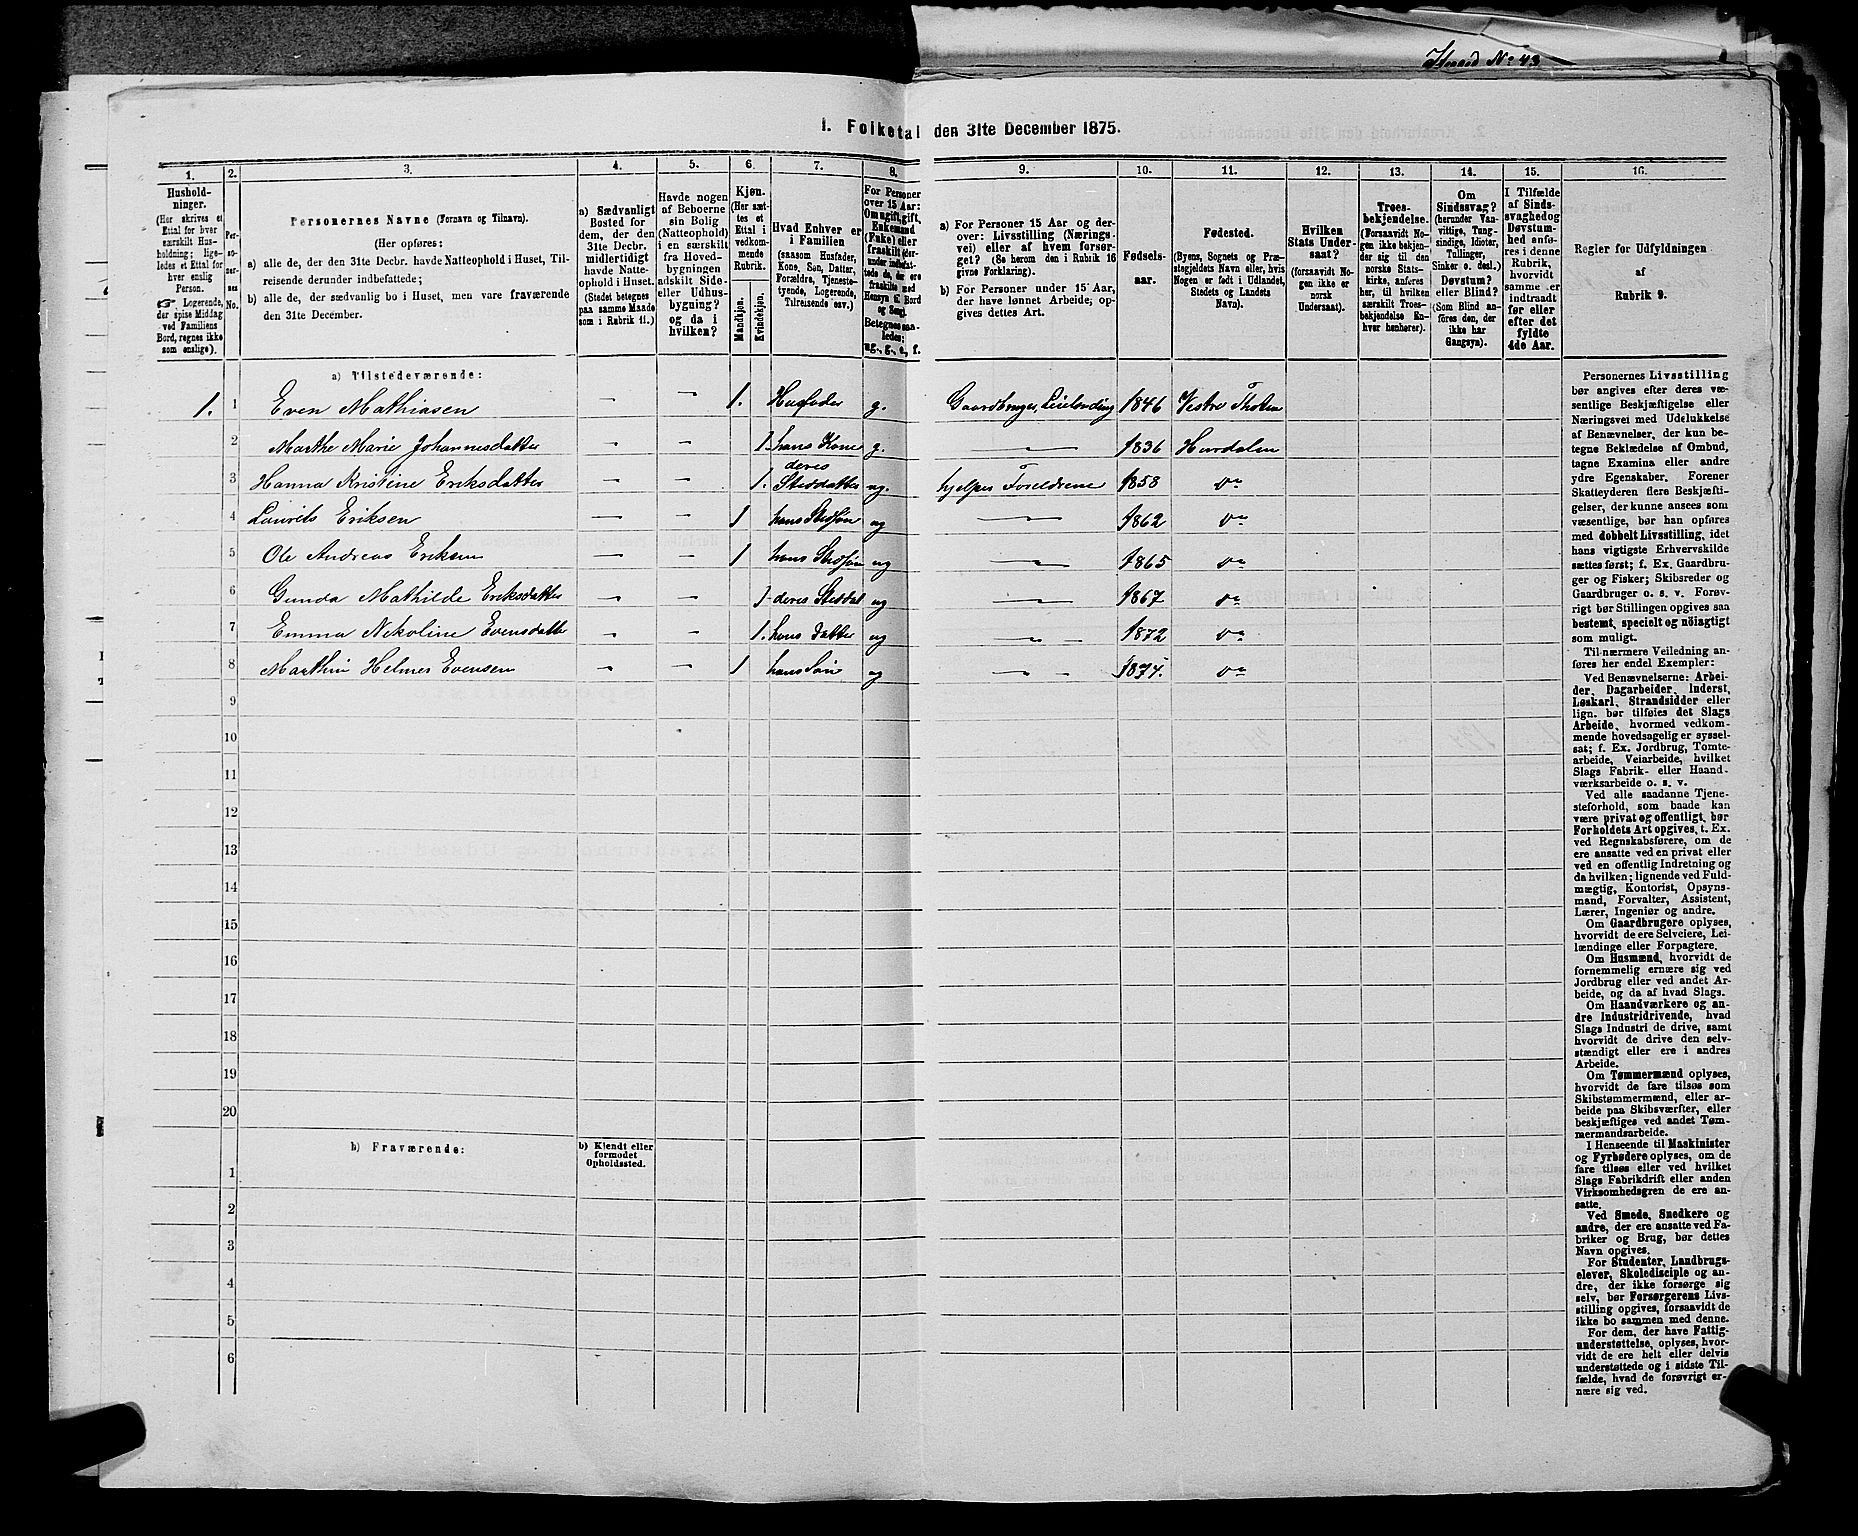 Herred No 43
1. Folketal den 31te December 1875.
1.
Husholdninger.
(Her skrives et
Ettal for hver
særskilt Husholdning; ligeledes et Ettal for
hver enslig
Person.
☞ Logerende,
der spise Middag
ved Familiens
Bord, regnes ikke
som enslige).
2.
Personernes
No.
3.
Personernes Navne (Fornavn og Tilnavn).
(Her opføres:
a) alle de, der den 31te Decbr. havde Natteophold i Huset, Tilreisende derunder indbefattede;
b) alle de, der sædvanlig bo i Huset, men vare fraværende
den 31te December.
4.
a) Sædvanligt
Bosted for
dem, der den
31te Decbr.
midlertidigt
havde Natteophold i Huset.
(Stedet betegnes
paa samme Maade
som i Rubrik 11.)
5.
Havde nogen
af Beboerne
sin Bolig
(Natteophold)
i en særskilt
fra Hovedbygningen
adskilt Side-
eller Udhusbygning?
og da i
hvilken?
6.
Kjøn.
(Her sættes et
Ettal i
vedkommende
Rubrik.
Mandkjøn.
Kvindekjøn.
7.
Hvad Enhver er
i Familien
(saasom Husfader,
Kone, Søn, Datter,
Forældre, Tjenestetyende, Logerende,
Tilreisende osv.)
8.
For Personer
over 15 Aar:
Om ugift, gift,
Enkemand
(Enke) eller
fraskilt
Betegnes saaledes:
ug., g., e., f.
9.
a) For Personer 15 Aar og derover: Livsstilling (Næringsvei) eller af hvem forsørget? (Se herom den i Rubrik 16
givne Forklaring).
b) For Personer under 15 Aar,
der have lønnet Arbeide, opgives dettes Art.
10.
Fødselsaar.
11.
Fødested.
(Byens, Sognets og Præstegjeldets Navn eller, hvis
Nogen er født i Udlandet,
Stedets og Landets
Navn).
12.
Hvilken
Stats Undersaat?
(forsaavidt Nogen ikke er
norsk
Undersaat).
13.
Troesbekjendelse.
(Forsaavidt Nogen ikke bekjender sig til den
norske Statskirke, anføres
her, til hvilken
særskilt Troesbekjendelse Enhver henhører).
14.
Om
Sindssvag?
(herunder Vanvittige, Tungsindige, Idioter,
Tullinger,
Sinker o. desl.)
Døvstum?
eller Blind?
(Som Blind anføres den, der
ikke har
Gangsyn).
15.
I Tilfælde
af Sindssvaghed og
Døvstumhed anføres i denne
Rubrik,
hvorvidt
samme er
indtraadt
før eller
efter det
fyldte
4de Aar.
16.
Regler for Udfyldningen
af
Rubrik 9.
a) Tilstedeværende:
1. 1 Even Mathiasen — — 1. Husfader g. Gaardbruger, Leilending 1846 Vestre Thoten
2 Marthe Marie Johannesdatter — — 1 hans Kone g. — 1836 Hurdalen
3 Hanna Kristine Eriksdatter — — 1. deres Steddatter ug. hjelper Foreldrene 1858 do
4 Laurits Eriksen — — 1 hans Stedsøn ug — 1862 do
5 Ole Andreas Eriksen — — 1 hans Stedsøn ug — 1865 do
6 Gunda Mathilde Eriksdatter — — 1 deres Steddat ug — 1867 do
7 Emma Nikoline Evensdatte — — 1. hans Datter ug — 1872 do
8 Marthin Helmer Evensen — — 1 hans Søn ug — 1874. do
9
10
11
12
13
14
15
16
17
18
19
20
b) Fraværende:
b) Kjendt eller
formodet
Opholdssted.
1
2
3
4
5
6
Personernes Livsstilling
bør angives efter deres væsentlige Beskjæftigelse eller
Næringsvei med Udelukkelse
af Benævnelser, der kun betegne Beklædelse af Ombud,
tagne Examina eller andre
ydre Egenskaber. Forener
Skatteyderen flere Beskjæftigelser, der kunne ansees som
væsentlige, bør han opføres
med dobbelt Livsstilling, idet
hans vigtigste Erhvervskilde
sættes først; f. Ex. Gaardbruger og Fisker; Skibsreder og
Gaardbruger o. s. v. Forøvrigt bør Stillingen opgives saa
bestemt, specielt og nöiagtigt
som muligt.
Til nærmere Veiledning anføres her endel Exempler:
Ved Benævnelserne: Arbeider, Dagarbeider, Inderst,
Løskarl, Strandsidder eller
lign. bør tilføies det Slags
Arbeide, hvormed vedkommende hovedsagelig er sysselsat; f. Ex. Jordbrug, Tomtearbeide, Veiarbeide, hvilket
Slags Fabrik- eller Haandværksarbeide o. s. v.
Ved alle saadanne Tjenesteforhold, som baade kan
være privat og offentligt, bør
Forholdets Art opgives, t. Ex.
ved Regnskabsførere, om de
ere ansatte ved en privat eller
ved en offentlig Indretning og
da hvilken; lignende ved Fuldmægtig, Kontorist, Opsynsmand, Forvalter, Assistent,
Lærer, Ingeniør og andre.
Om Gaardbrugere oplyses,
hvorvidt de ere Selveiere, Leilændinge eller Forpagtere.
Om Husmænd, hvorvidt de
fornemmelig ernære sig ved
Jordbrug eller ved andet Arbeide, og da af hvad Slags.
Om Haandværkere og andre Industridrivende, hvad
Slags Industri de drive, samt
hvorvidt de drive den selvstændigt eller ere i andres
Arbeide.
Om Tømmermænd oplyses,
hvorvidt de fare tilsøs som
Skibstømmermænd, eller arbeide paa Skibsværfter, eller
beskjæftiges ved andet Tømmermandsarbeide.
I Henseende til Maskinister
og Fyrbødere oplyses, om de
fare tilsøs eller ved hvilket
Slags Fabrikdrift eller anden
Virksomhedsgren de ere ansatte.
Ved Smede, Snedkere og
andre, der ere ansatte ved Fabriker og Brug, bør dettes
Navn opgives.
For Studenter, Landbrugselever, Skoledisciple og andre, der ikke forsørge sig
selv, bør Forsørgerens Livsstilling opgives, forsaavidt de
ikke bo sammen med denne.
For dem, der have Fattigunderstøttelse, oplyses, hvorvidt de ere helt eller delvis
understøttede og i sidste Tilfælde, hvad de forøvrigt ernære sig ved.